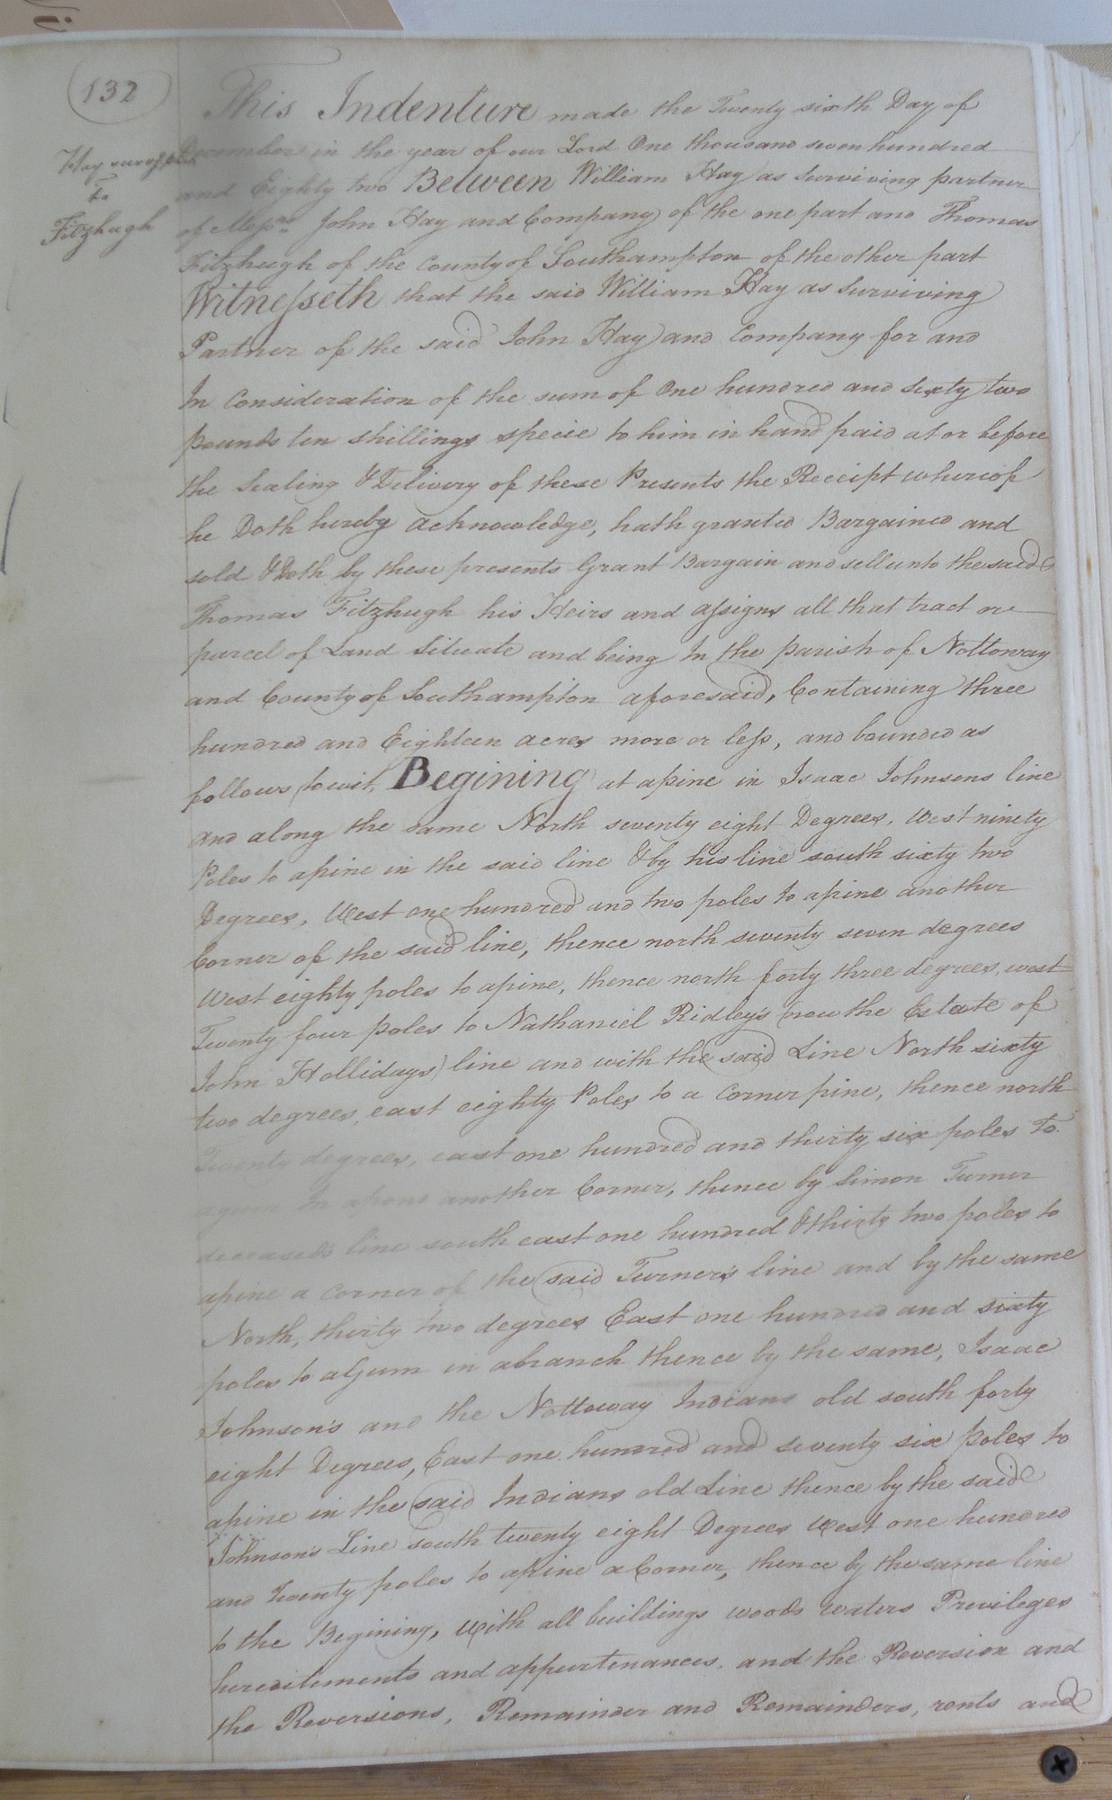 132
Hay
To
Fitzhugh
This Indenture made the Twenty sixth Day of
December in the year of our Lord One thousand seven hundred
and Eighty two Between William Hay as Surviving partner
of Messrs John Hay and Company of the one part and Thomas
Fitzhugh of the County of Southampton of the other part
Witnesseth that the said William Hay as Surviving
Partner of the said John Hay and Company for and
In Consideration of the sum of One hundred and Sixty two
pounds ten shillings specie to him in hand paid at or before
the Sealing & Delivery of these Presents the Receipt whereof
he Doth hereby acknowledge, hath granted Bargained and
sold & Doth by these presents Grant Bargain and sell unto the said
Thomas Fitzhugh his Heirs and assigns all that tract or
parcel of Land Situate and being In the parish of Nottoway
and County of Southampton aforesaid, Containing three
hundred and Eighteen acres more or less, and bounded as
follows, towit, Begining at a pine in Isaac Johnsons line
and along the same North seventy eight Degrees, West ninety
Poles to a pine in the said line & by his line south sixty two
Degrees, West one hundred and two poles to a pine another
Corner of the said line, thence north seventy seven degrees
West eighty poles to a pine, thence north forty three degrees, west
Twenty four poles to Nathaniel Ridley's (now the Estate of
John Hollidays) line and with the said Line North sixty
two degrees, east eighty Poles to a Corner pine, thence north
Twenty degrees, east one hundred and thirty six poles To
another Corner, thence by Simon Turner
deceaseds line south east one hundred & thirty two poles to
a pine a corner of the said Turner's line and by the same
North, thirty two degrees East one hundred and sixty
poles to a Gum in a branch thence by the same, Isaac
Johnson's and the Nottoway Indians old south forty
eight Degrees, East one hundred and seventy six poles to
a pine in the said Indians old Line thence by the said
Johnson's Line south twenty eight Degrees West one hundred
and Twenty poles to a pine a Corner, thence by the same line
to the Begining, With all buildings woods waters Privileges
heredilements and appurtenances, and the Reversion and
the Reversions, Remainder and Remainders, rents and